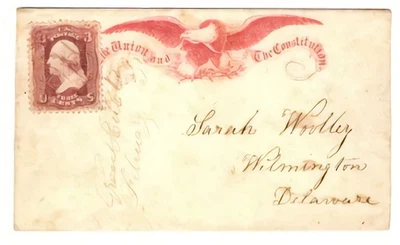 U.S. POSTAGE
3 3
U THREE CENTS S
The Union and The Constitution.
Sarah Woolley
Wilmington
Delaware